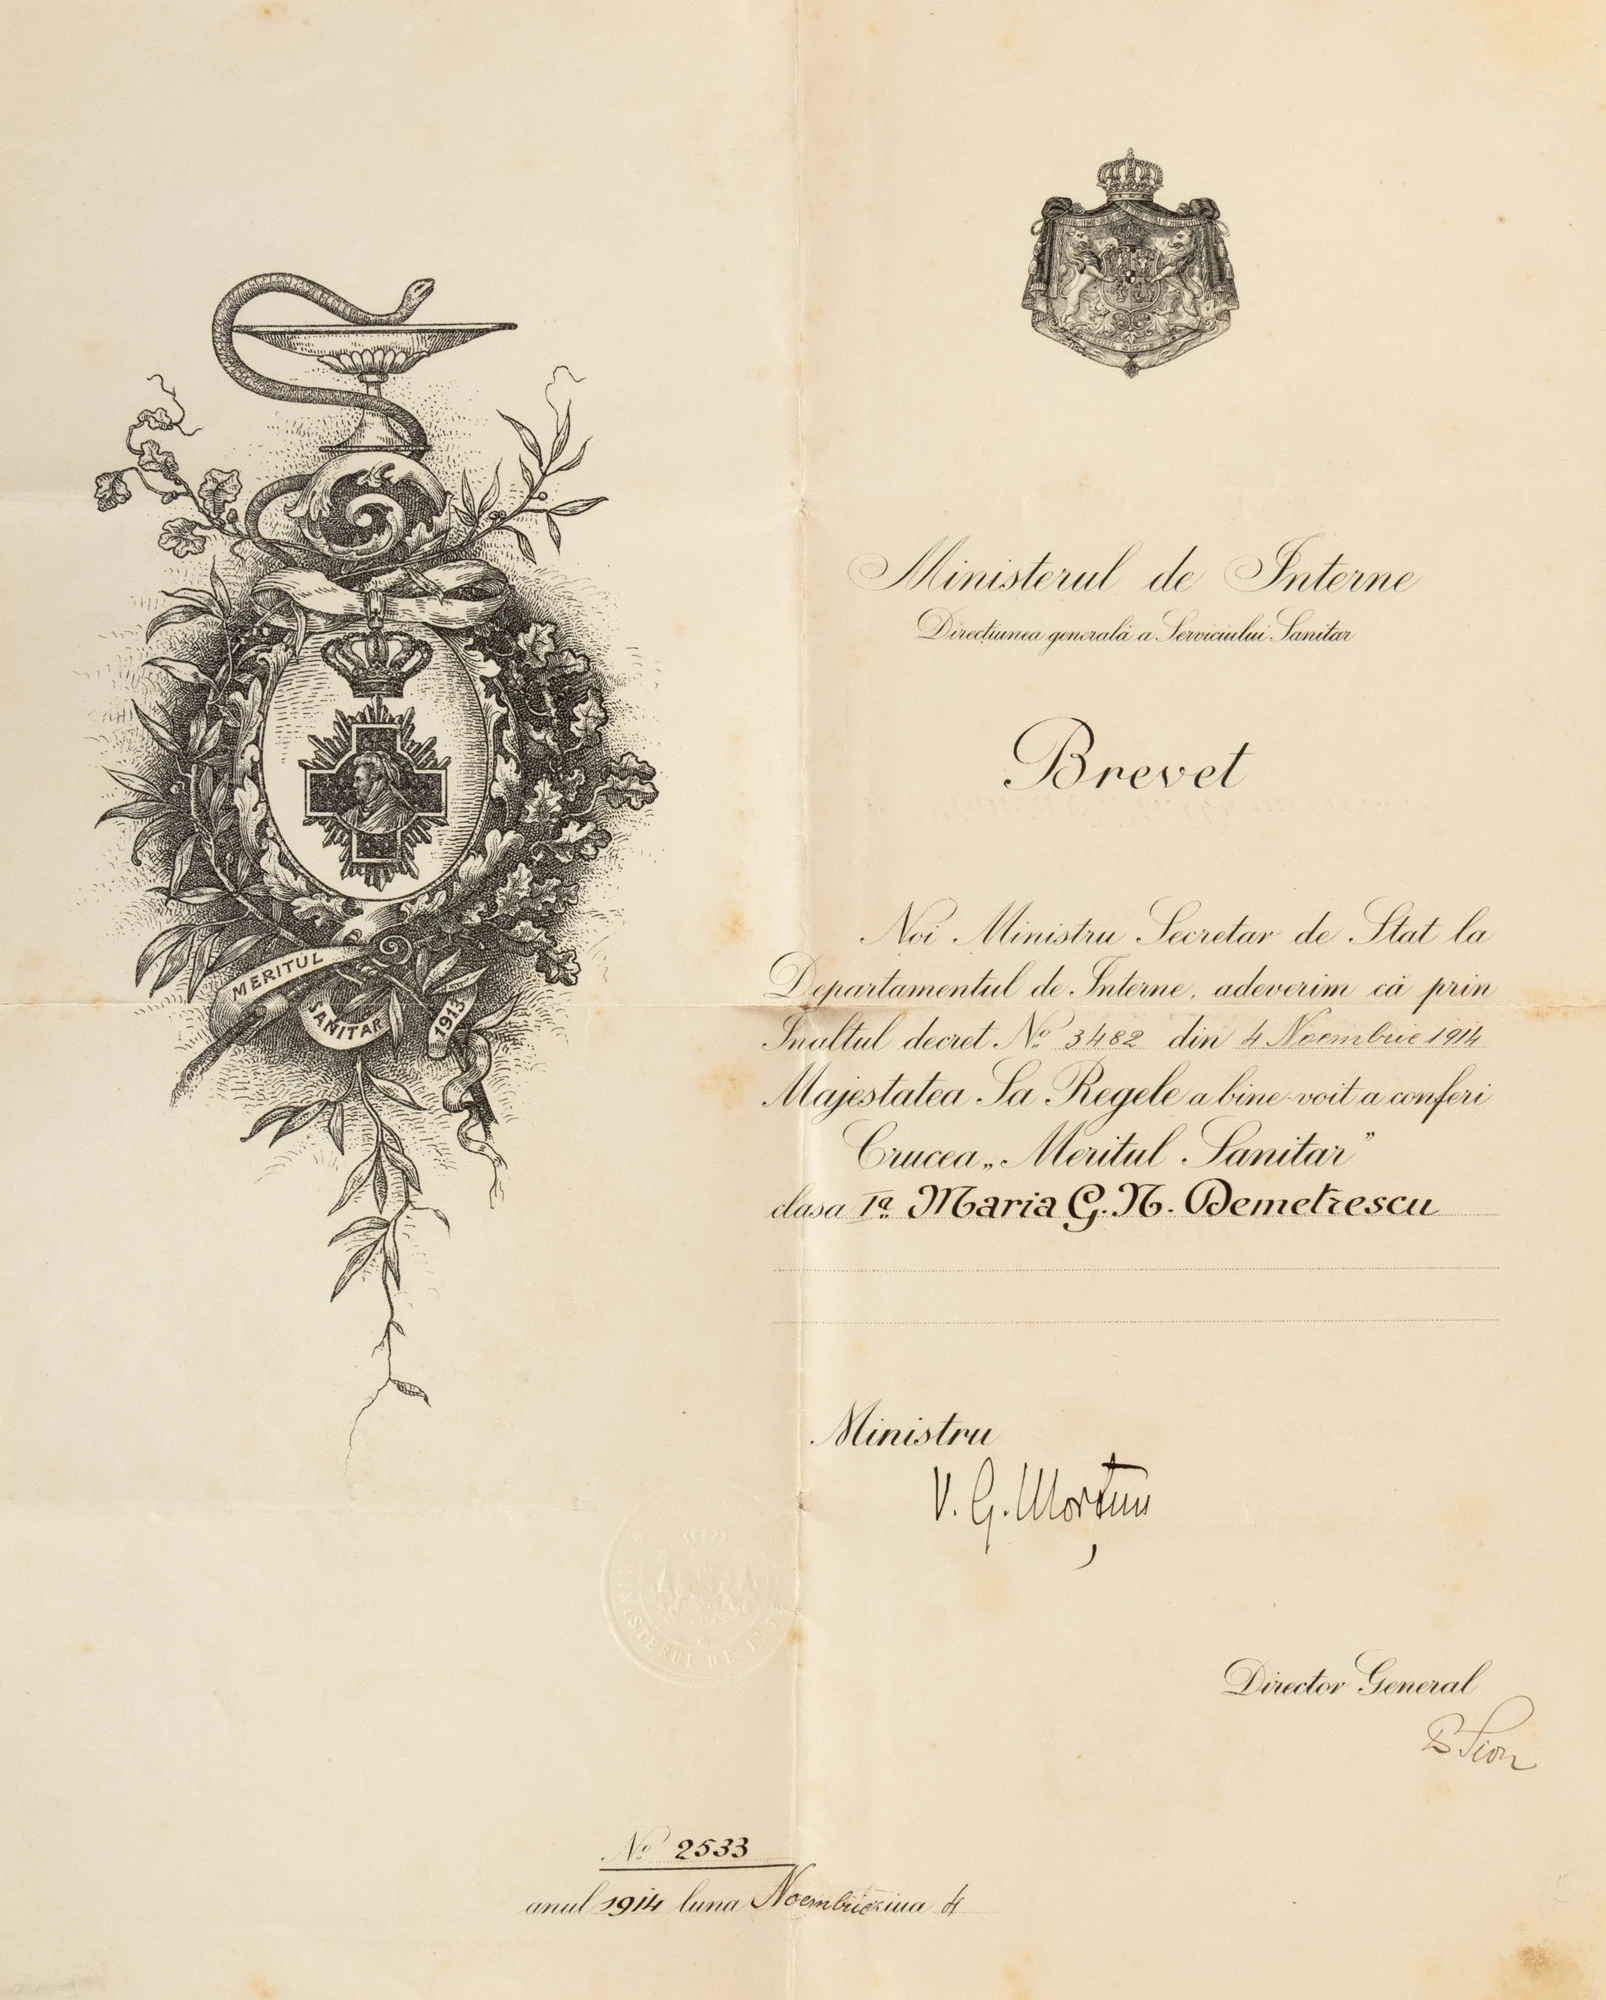 Ministerul de Interne
Direcțiunea generală a Serviciului Sanitar
Brevet
Noi Ministru Secretar de Stat la
Departamentul de Interne, adeverim că prin
Inaltul decret No 3482 din 4 Noembrie 1914
Majestatea Sa Regele a bine-voit a conferi
Crucea „Meritul Sanitar”
clasa Iª Maria G. N. Demetrescu
Ministru
V. G. Morțun
Director General
Sion
No 2533
anul 1914 luna Noembrie ziua 4
MERITUL
SANITAR
1913
MINISTERUL DE